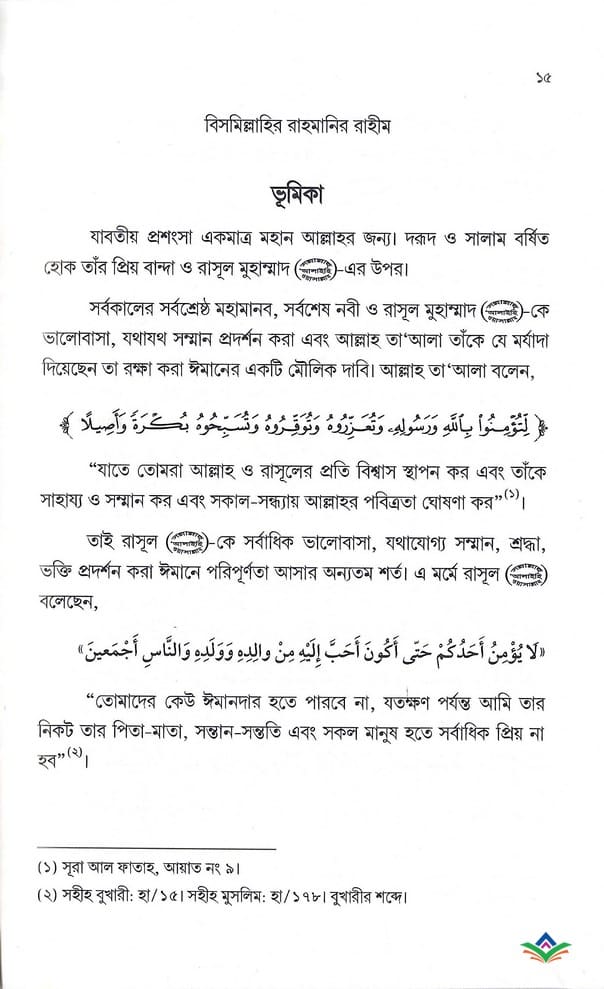 ১৫
বিসমিল্লাহির রাহমানির রাহীম
ভূমিকা
যাবতীয় প্রশংসা একমাত্র মহান আল্লাহর জন্য। দরূদ ও সালাম বর্ষিত
হোক তাঁর প্রিয় বান্দা ও রাসূল মুহাম্মাদ (সাল্লাল্লাহু আলাইহি ওয়াসাল্লাম)-এর উপর।
সর্বকালের সর্বশ্রেষ্ঠ মহামানব, সর্বশেষ নবী ও রাসূল মুহাম্মাদ (সাল্লাল্লাহু আলাইহি ওয়াসাল্লাম)-কে
ভালোবাসা, যথাযথ সম্মান প্রদর্শন করা এবং আল্লাহ তা‘আলা তাঁকে যে মর্যাদা
দিয়েছেন তা রক্ষা করা ঈমানের একটি মৌলিক দাবি। আল্লাহ তা‘আলা বলেন,
﴿ لِّتُؤْمِنُواْ بِاللَّهِ وَرَسُولِهِۦ وَتُعَزِّرُوهُ وَتُوَقِّرُوهُ وَتُسَبِّحُوهُ بُكْرَةً وَأَصِيلًا ﴾
“যাতে তোমরা আল্লাহ ও রাসূলের প্রতি বিশ্বাস স্থাপন কর এবং তাঁকে
সাহায্য ও সম্মান কর এবং সকাল-সন্ধ্যায় আল্লাহর পবিত্রতা ঘোষণা কর”(১)।
তাই রাসূল (সাল্লাল্লাহু আলাইহি ওয়াসাল্লাম)-কে সর্বাধিক ভালোবাসা, যথাযোগ্য সম্মান, শ্রদ্ধা,
ভক্তি প্রদর্শন করা ঈমানে পরিপূর্ণতা আসার অন্যতম শর্ত। এ মর্মে রাসূল (সাল্লাল্লাহু আলাইহি ওয়াসাল্লাম)
বলেছেন,
«لَا يُؤْمِنُ أَحَدُكُمْ حَتَّى أَكُونَ أَحَبَّ إِلَيْهِ مِنْ والِدِهِ وَوَلَدِهِ وَالنَّاسِ أَجْمَعينَ»
“তোমাদের কেউ ঈমানদার হতে পারবে না, যতক্ষণ পর্যন্ত আমি তার
নিকট তার পিতা-মাতা, সন্তান-সন্ততি এবং সকল মানুষ হতে সর্বাধিক প্রিয় না
হব”(২)।
(১) সূরা আল ফাতাহ, আয়াত নং ৯।
(২) সহীহ বুখারী: হা/১৫। সহীহ মুসলিম: হা/১৭৮। বুখারীর শব্দে।